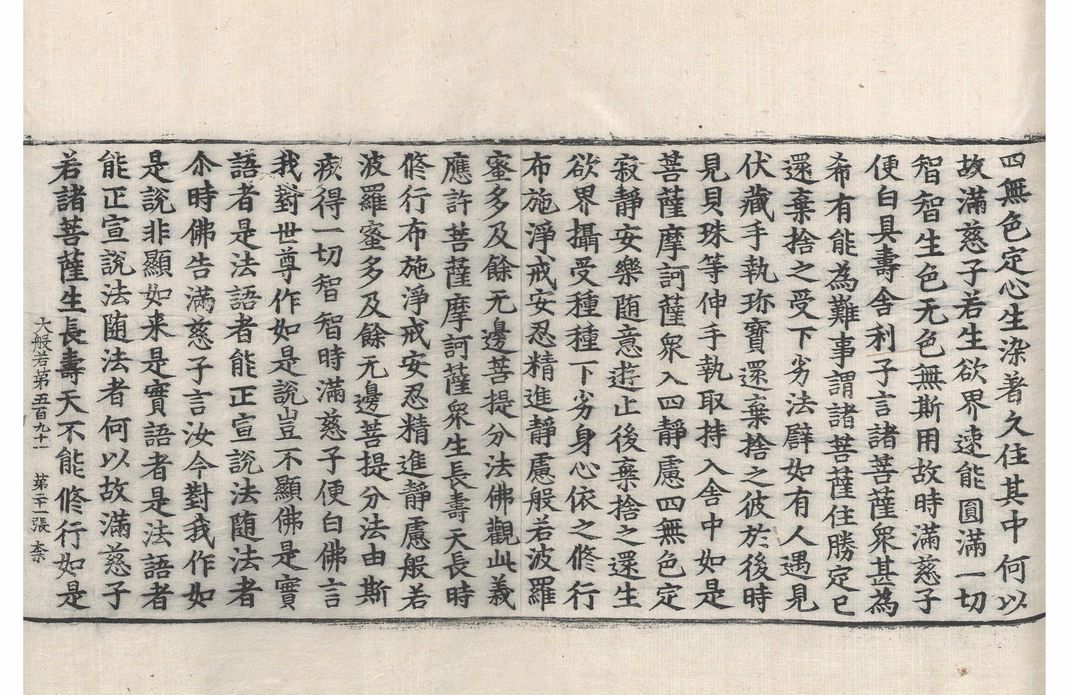 四無色定心生染著久住其中何以
故滿慈子若生欲界速能圓滿一切
智智生色无色無斯用故時滿慈子
便白具壽舍利子言諸菩薩衆甚為
希有能為難事謂諸菩薩住勝定已
還棄捨之受下劣法譬如有人遇見
伏藏手執珎寶還棄捨之彼於後時
見貝珠等伸手執取持入舍中如是
菩薩摩訶薩衆入四靜慮四無色定
寂靜安樂随意遊止後棄捨之還生
欲界攝受種種下劣身心依之修行
布施淨戒安忍精進靜慮般若波羅
蜜多及餘无邊菩提分法佛觀此義
應許菩薩摩訶薩衆生長壽天長時
修行布施淨戒安忍精進靜慮般若
波羅蜜多及餘无邊菩提分法由斯
疾得一切智智時滿慈子便白佛言
我對世尊作如是說豈不顯佛是實
語者是法語者能正宣說法随法者
尒時佛告滿慈子言汝今對我作如
是說非顯如来是實語者是法語者
能正宣說法随法者何以故滿慈子
若諸菩薩生長壽天不能修行如是
大般若第五百九十二 第二十一張 柰